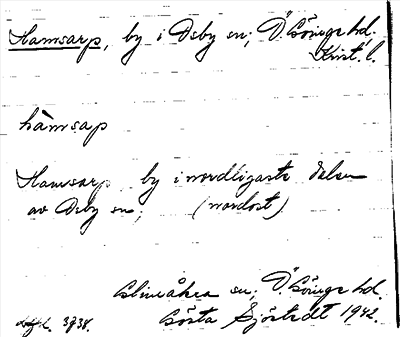 Hamsarp, by i Osby sn; Ö. Göinge hd.
Krist. l.
hàmsap
Hamsarp by i nordligaste delen
av Osby sn; (nordost)
Glimåkra sn, Ö. Göinge hd.
3938. Gösta Sjöstedt 1942.